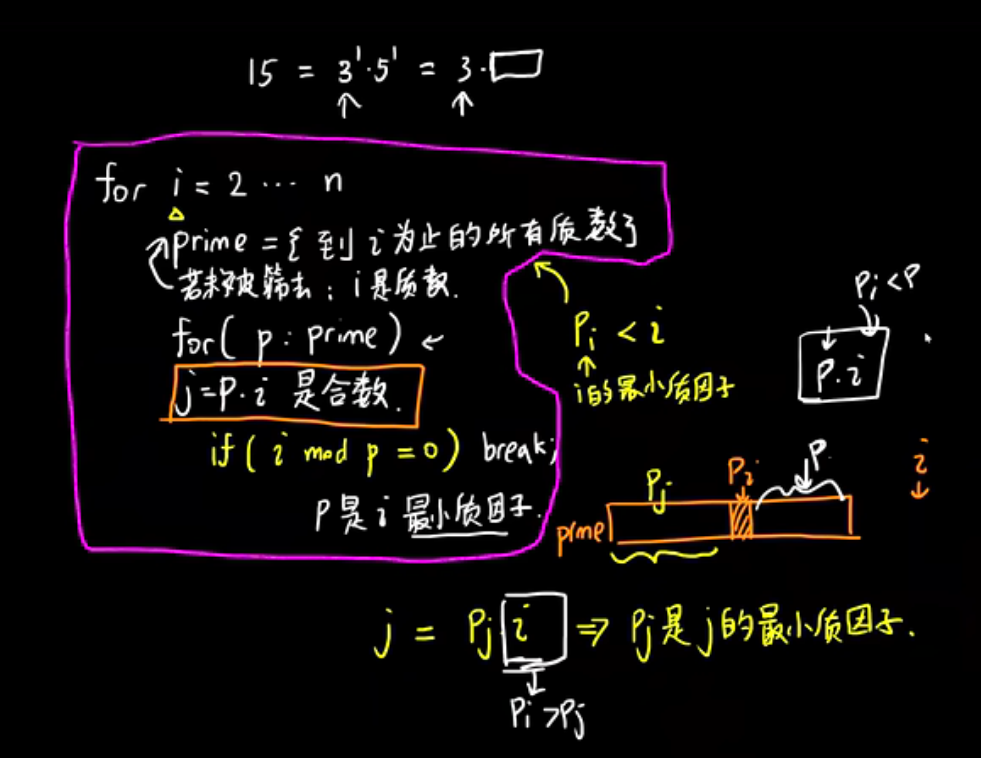 15 = 3¹·5¹ = 3·
for i = 2 ··· n
prime = { 到 i 为止的所有质数 }
若未被筛去：i 是质数.
for( p : prime )
j=P·i 是合数.
if ( i mod p = 0 ) break;
P是 i 最小质因子.
Pi < i
i的最小质因子
Pi<P
P·i
prime
Pj
Pi
P
i
j = Pj i ⇒ Pj是 j 的最小质因子.
Pi >Pj